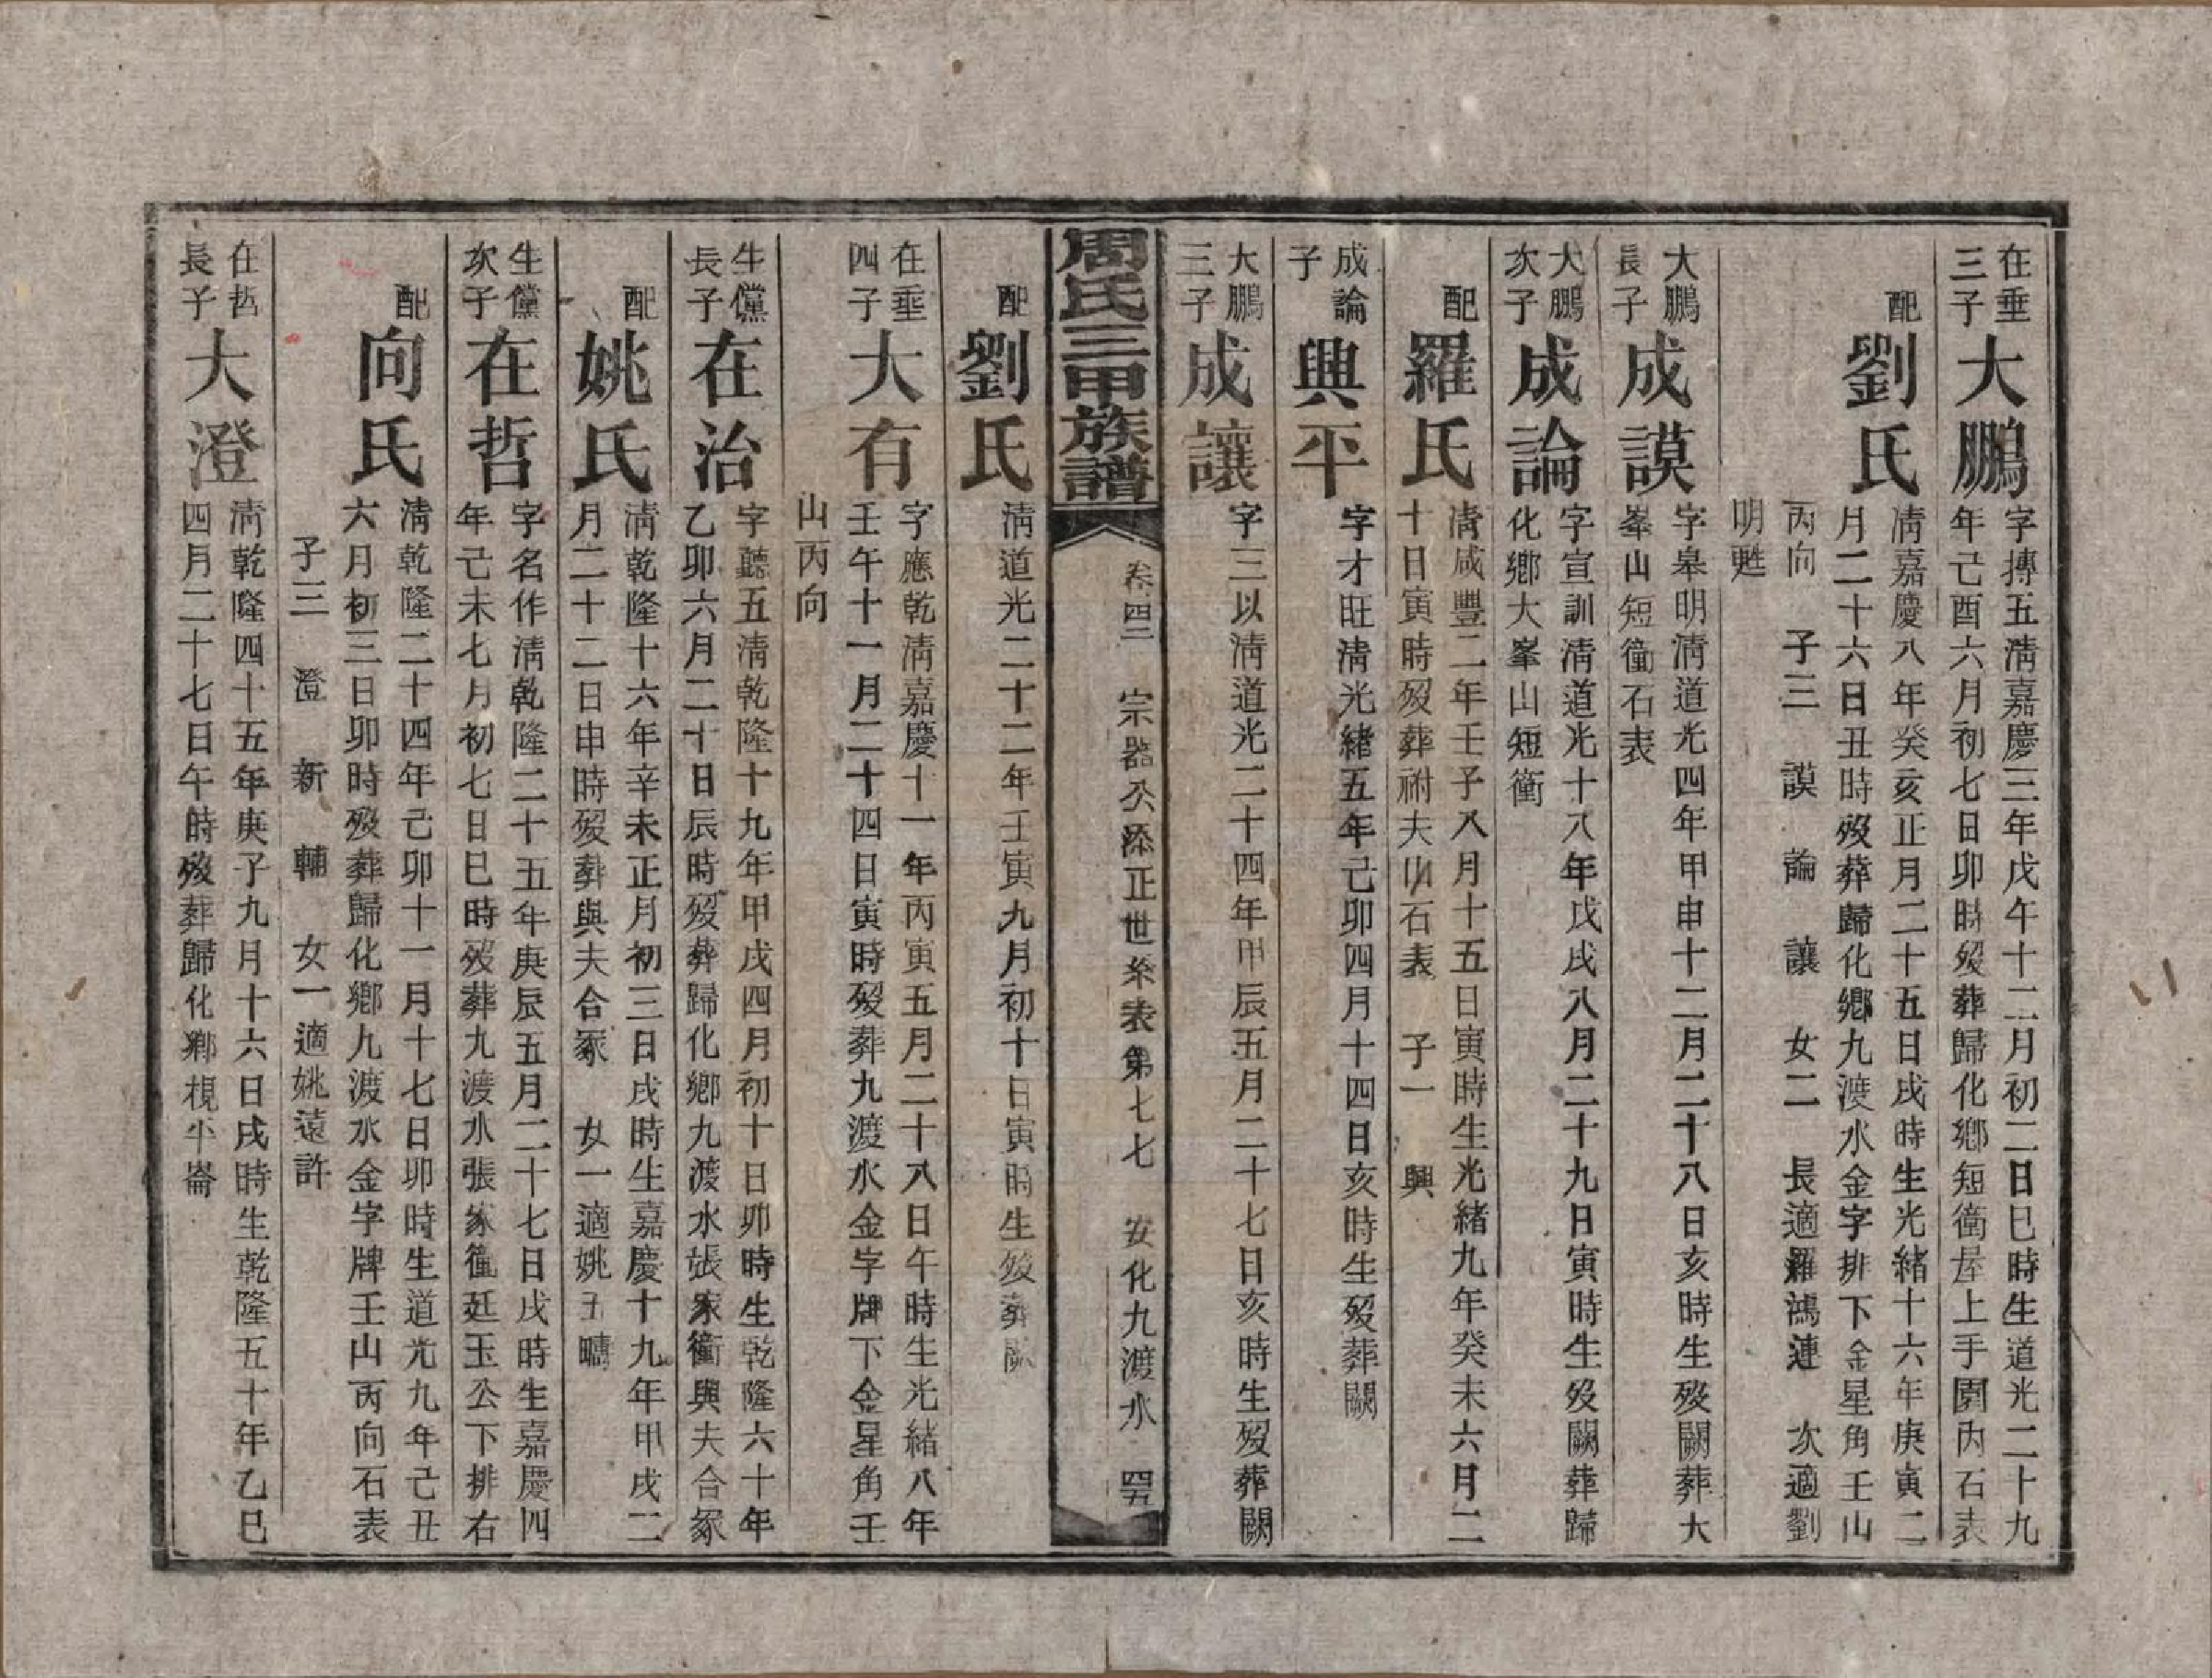 在垂
三子
大鵬
字摶五淸嘉慶三年戊午十二月初二日巳時生道光二十九
年己酉六月初七日卯時歿葬歸化鄉短衝屋上手園內石表
配
劉氏
淸嘉慶八年癸亥正月二十五日戌時生光緒十六年庚寅二
月二十六日丑時歿葬歸化鄉九渡水金字排下金星角壬山
丙向 子三 謨 論 讓 女二 長適羅鴻漣 次適劉
明甦
大鵬
長子
成謨
字皋明淸道光四年甲申十二月二十八日亥時生歿闕葬大
峯山短衝石表
大鵬
次子
成論
字宣訓淸道光十八年戊戌八月二十九日寅時生歿闕葬歸
化鄉大峯山短衝
配
羅氏
淸咸豐二年壬子八月十五日寅時生光緒九年癸未六月二
十日寅時歿葬祔夫山石表 子一 興
成論
子
興平
字才旺淸光緒五年己卯四月十四日亥時生歿葬闕
大鵬
三子
成讓
字三以淸道光二十四年甲辰五月二十七日亥時生歿葬闕
周氏三甲族譜
卷四二 宗器公添正世系表第七七 安化九渡水 四五
配
劉氏
淸道光二十二年壬寅九月初十日寅時生歿葬闕
在垂
四子
大有
字應乾淸嘉慶十一年丙寅五月二十八日午時生光緒八年
壬午十一月二十四日寅時歿葬九渡水金字牌下金星角壬
山丙向
生儻
長子
在治
字聽五淸乾隆十九年甲戌四月初十日卯時生乾隆六十年
乙卯六月二十日辰時歿葬歸化鄉九渡水張家衝與夫合冢
配
姚氏
淸乾隆十六年辛未正月初三日戌時生嘉慶十九年甲戌二
月二十二日申時歿葬與夫合冢 女一適姚玉疇
生儻
次子
在哲
字名作淸乾隆二十五年庚辰五月二十七日戌時生嘉慶四
年己未七月初七日巳時歿葬九渡水張家衝廷玉公下排右
配
向氏
淸乾隆二十四年己卯十一月十七日卯時生道光九年己丑
六月初三日卯時歿葬歸化鄉九渡水金字牌壬山丙向石表
子三 澄 新 輔 女一適姚遠許
在哲
長子
大澄
淸乾隆四十五年庚子九月十六日戌時生乾隆五十年乙巳
四月二十七日午時歿葬歸化鄉梘半崙